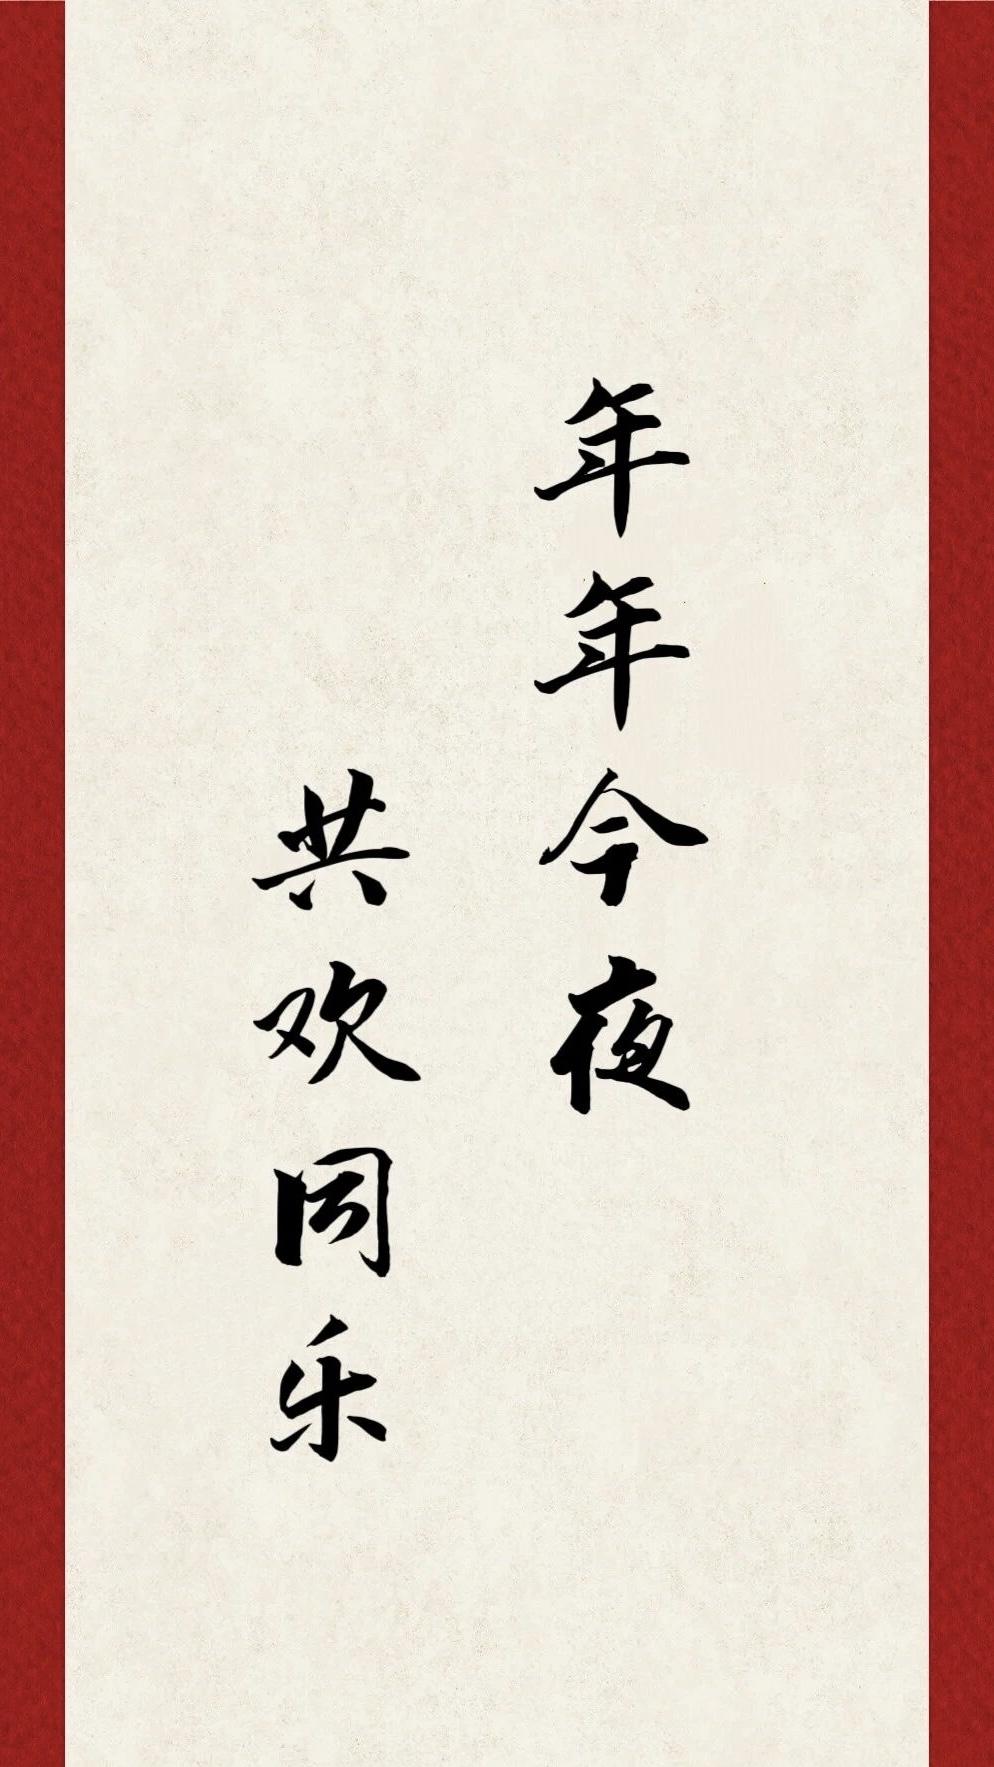 年年今夜
共欢同乐